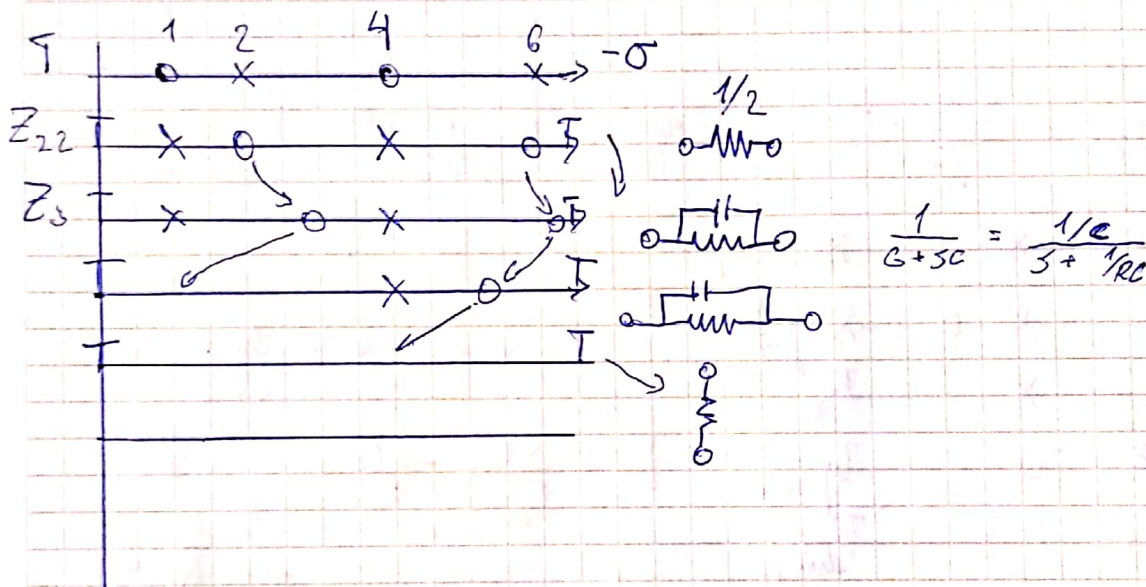 T 1 2 4 6 -σ
1/2
Z22
Z3
1/(G+SC) = (1/C)/(S+1/RC)